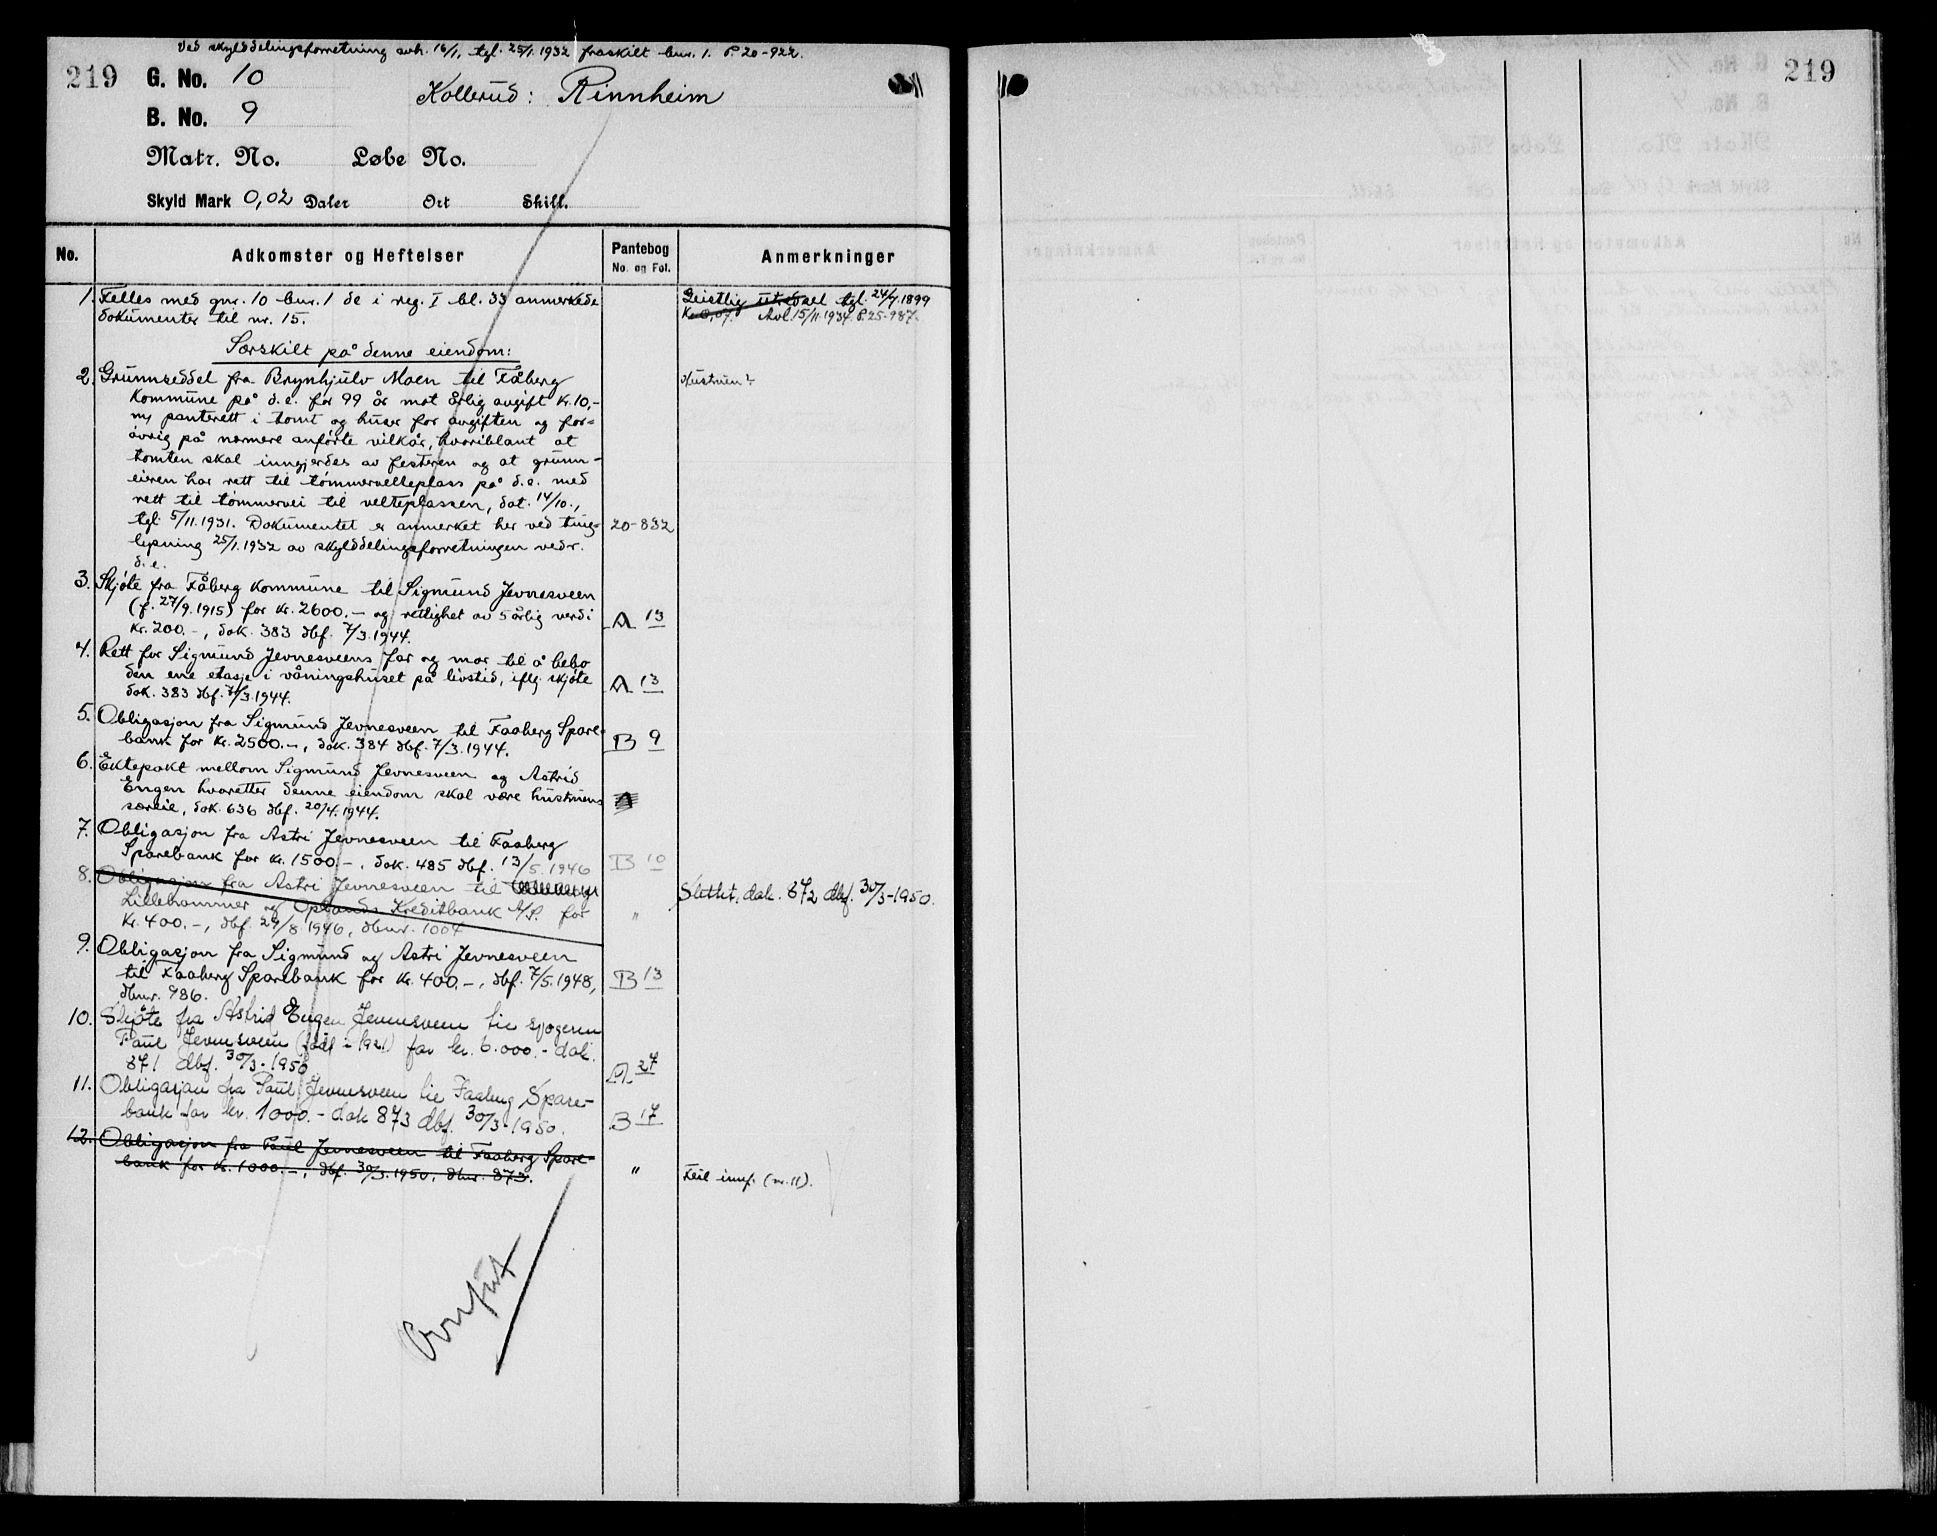 Ved skylddelingsforretning avh. 16/1, tgl. 25/1 1932 fraskilt bnr. 1. P. 20-922.
219 G. No. 10 Kollerud: Rinnheim
B. No. 9
Matr. No. Løbe No.
Skyld Mark 0,02 Daler Ort Skill.
No. Adkomster og Heftelser Pantebog No. og Fol. Anmerkninger
1. Felles med gnr. 10 bnr. 1 de i reg. I bl. 33 anmerkede
dokumenter til nr. 15.
Geistlig tgl. 24/7.1899
Kr. 0,07. Avl. 15/11.1934. P. 25-987.
Særskilt på denne eiendom:
2. Grunnseddel fra Brynhjulv Moen til Fåberg Hustruen?
Kommune på d.e. for 99 år mot årlig avgift kr. 10,-
m/ panterett i tomt og huser for avgiften og for=
øvrig på nærmere anførte vilkår, hvoriblant at
tomten skal inngjerdes av festeren og at grunn-
eieren har rett til tømmervelteplass på d.e. med
rett til tømmervei til velteplassen, dat. 14/10.,
tgl. 5/11.1931. Dokumentet er anmerket her ved ting- 20-832
lysning 25/1.1932 av skylddelingsforretningen vedr.
d.e.
3. Skjøte fra Fåberg kommune til Sigmund Jevnesveen
(f. 27/9.1915) for kr. 2600.- og rettighet av 5 årlig verdi A 13
kr. 200.-, dok. 383 dbf. 7/3.1944.
4. Rett for Sigmund Jevnesveens far og mor til å bebo
den ene etasje i våningshuset på livstid, iflg. skjøte A 13
dok. 383 dbf. 7/3.1944.
5. Obligasjon fra Sigmund Jevnesveen til Faaberg Spare=
bank for kr. 2500.-, dok. 384 dbf. 7/3.1944. B 9
6. Ektepakt mellom Sigmund Jevnesveen og Astrid
Engen hvoretter denne eiendom skal være hustruens A
særeie, dok. 636 dbf. 20/4.1944.
7. Obligasjon fra Astri Jevnesveen til Faaberg
Sparebank for kr. 1500.-, dok. 485 dbf. 13/5.1946 B 10
8. Obligasjon fra Astri Jevnesveen til Slettet, dok. 872 dbf. 30/3-1950.
Lillehammer og Oplands Kreditbank A/S. for "
kr. 400.-, dbf. 29/8.1946, dbnr. 1004
9. Obligasjon fra Sigmund og Astri Jevnesveen
til Faaberg Sparebank for kr. 400.-, dbf. 7/5.1948, B 13
dbnr. 986.
10. Skjøte fra Astrid Engen Jevnesveen til svogeren
Paul Jevnesveen (født i 1921) for kr. 6.000.- dok.
871 dbf. 30/3-1950 A 27
11. Obligasjon fra Paul Jevnesveen til Faaberg Spare-
bank for kr. 1000.- dok 873 dbf. 30/3-1950. B 17
12. Obligasjon fra Paul Jevnesveen til Faaberg Spare-
bank for kr. 1000.-, dbf. 30/3.1950, dbnr. 873. " Feil innf. (nr. 11).
Overført
219